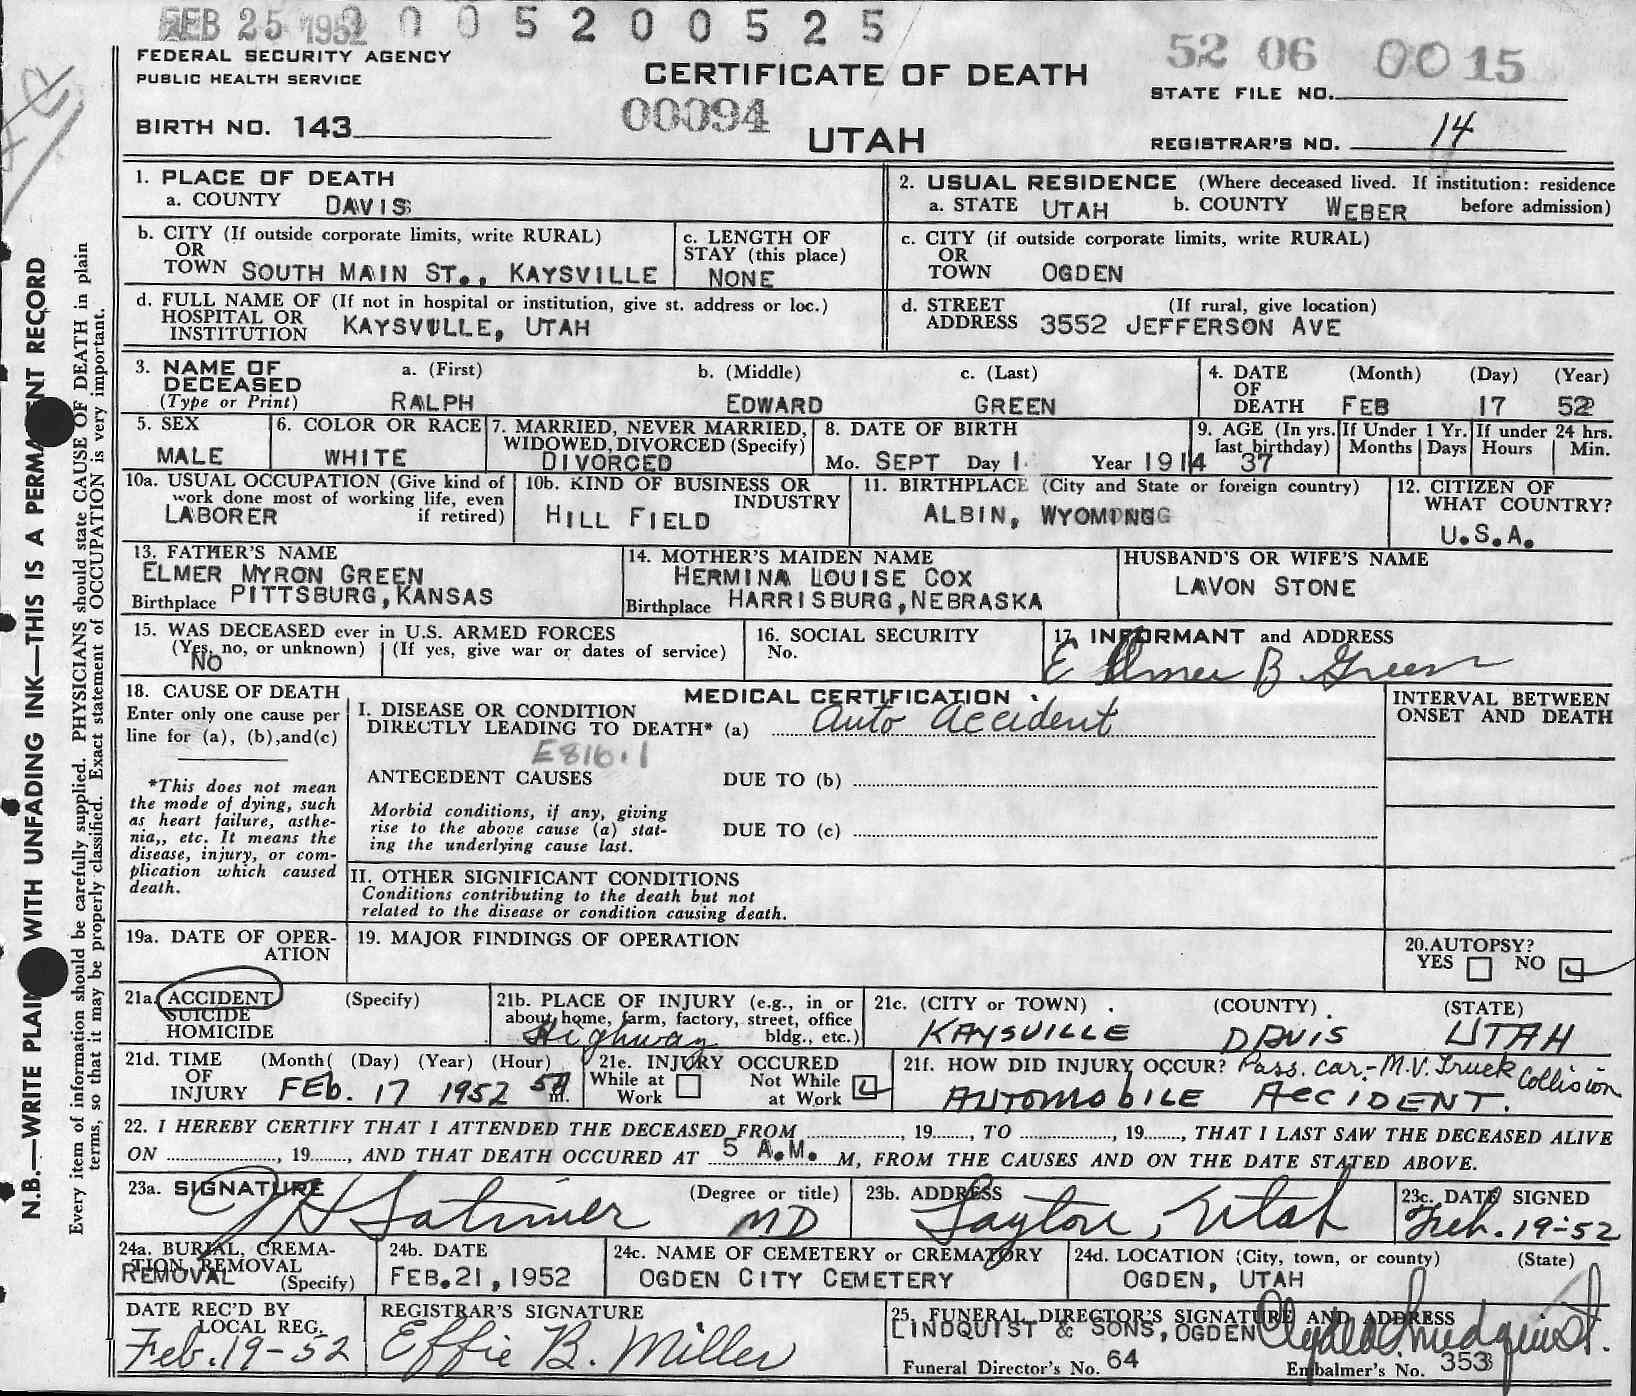 FEB 25 1952 0 0 5 2 0 0 5 2 5
FEDERAL SECURITY AGENCY
PUBLIC HEALTH SERVICE
CERTIFICATE OF DEATH
52 06 0015
STATE FILE NO.
00094
BIRTH NO. 143
UTAH
REGISTRAR'S NO. 14
1. PLACE OF DEATH
a. COUNTY DAVIS
2. USUAL RESIDENCE (Where deceased lived. If institution: residence before admission)
a. STATE UTAH b. COUNTY WEBER
b. CITY (If outside corporate limits, write RURAL)
OR
TOWN SOUTH MAIN ST., KAYSVILLE
c. LENGTH OF
STAY (this place)
NONE
c. CITY (if outside corporate limits, write RURAL)
OR
TOWN OGDEN
d. FULL NAME OF (If not in hospital or institution, give st. address or loc.)
HOSPITAL OR
INSTITUTION KAYSVILLE, UTAH
d. STREET (If rural, give location)
ADDRESS 3552 JEFFERSON AVE
3. NAME OF
DECEASED
(Type or Print)
a. (First) b. (Middle) c. (Last)
RALPH EDWARD GREEN
4. DATE (Month) (Day) (Year)
OF
DEATH FEB 17 52
5. SEX
MALE
6. COLOR OR RACE
WHITE
7. MARRIED, NEVER MARRIED,
WIDOWED, DIVORCED (Specify)
DIVORCED
8. DATE OF BIRTH
Mo. SEPT Day 1 Year 1914
9. AGE (In yrs.
last birthday)
37
If Under 1 Yr.
Months Days
If under 24 hrs.
Hours Min.
10a. USUAL OCCUPATION (Give kind of
work done most of working life, even
if retired)
LABORER
10b. KIND OF BUSINESS OR
INDUSTRY
HILL FIELD
11. BIRTHPLACE (City and State or foreign country)
ALBIN, WYOMINGG
12. CITIZEN OF
WHAT COUNTRY?
U.S.A.
13. FATHER'S NAME
ELMER MYRON GREEN
Birthplace PITTSBURG, KANSAS
14. MOTHER'S MAIDEN NAME
HERMINA LOUISE COX
Birthplace HARRISBURG, NEBRASKA
HUSBAND'S OR WIFE'S NAME
LAVON STONE
15. WAS DECEASED ever in U.S. ARMED FORCES
(Yes, no, or unknown) (If yes, give war or dates of service)
NO
16. SOCIAL SECURITY
No.
17. INFORMANT and ADDRESS
Elmer B Green
18. CAUSE OF DEATH
Enter only one cause per
line for (a), (b), and (c)
*This does not mean
the mode of dying, such
as heart failure, asthe-
nia,, etc. It means the
disease, injury, or com-
plication which caused
death.
MEDICAL CERTIFICATION
I. DISEASE OR CONDITION
DIRECTLY LEADING TO DEATH* (a) Auto Accident
E816.1
ANTECEDENT CAUSES DUE TO (b)
Morbid conditions, if any, giving
rise to the above cause (a) stat-
ing the underlying cause last.
DUE TO (c)
II. OTHER SIGNIFICANT CONDITIONS
Conditions contributing to the death but not
related to the disease or condition causing death.
INTERVAL BETWEEN
ONSET AND DEATH
19a. DATE OF OPER-
ATION
19. MAJOR FINDINGS OF OPERATION
20. AUTOPSY?
YES NO
21a. ACCIDENT (Specify)
SUICIDE
HOMICIDE
21b. PLACE OF INJURY (e.g., in or
about home, farm, factory, street, office
bldg., etc.)
Highway
21c. (CITY or TOWN) (COUNTY) (STATE)
KAYSVILLE DAVIS UTAH
21d. TIME (Month( (Day) (Year) (Hour)
OF
INJURY FEB. 17 1952 5A m.
21e. INJURY OCCURED
While at Work Not While at Work
21f. HOW DID INJURY OCCUR? Pass. car - M.V. Truck Collision
AUTOMOBILE ACCIDENT.
22. I HEREBY CERTIFY THAT I ATTENDED THE DECEASED FROM , 19 , TO , 19 , THAT I LAST SAW THE DECEASED ALIVE
ON , 19 , AND THAT DEATH OCCURED AT 5 A.M. M, FROM THE CAUSES AND ON THE DATE STATED ABOVE.
23a. SIGNATURE (Degree or title)
MD
23b. ADDRESS
Layton, Utah
23c. DATE SIGNED
Feb. 19-52
24a. BURIAL, CREMA-
TION, REMOVAL
(Specify)
REMOVAL
24b. DATE
FEB. 21, 1952
24c. NAME OF CEMETERY or CREMATORY
OGDEN CITY CEMETERY
24d. LOCATION (City, town, or county) (State)
OGDEN, UTAH
DATE REC'D BY
LOCAL REG.
Feb. 19-52
REGISTRAR'S SIGNATURE
Effie B. Miller
25. FUNERAL DIRECTOR'S SIGNATURE AND ADDRESS
LINDQUIST & SONS, OGDEN
Funeral Director's No. 64 Embalmer's No. 353
N.B.—WRITE PLAINLY WITH UNFADING INK—THIS IS A PERMANENT RECORD
Every item of information should be carefully supplied. PHYSICIANS should state CAUSE OF DEATH in plain
terms, so that it may be properly classified. Exact statement of OCCUPATION is very important.